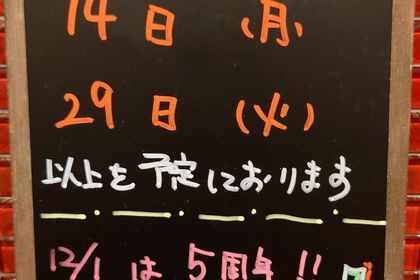 14日 (月)
29日 (火)
以上を予定しております
12/1は5周年!!